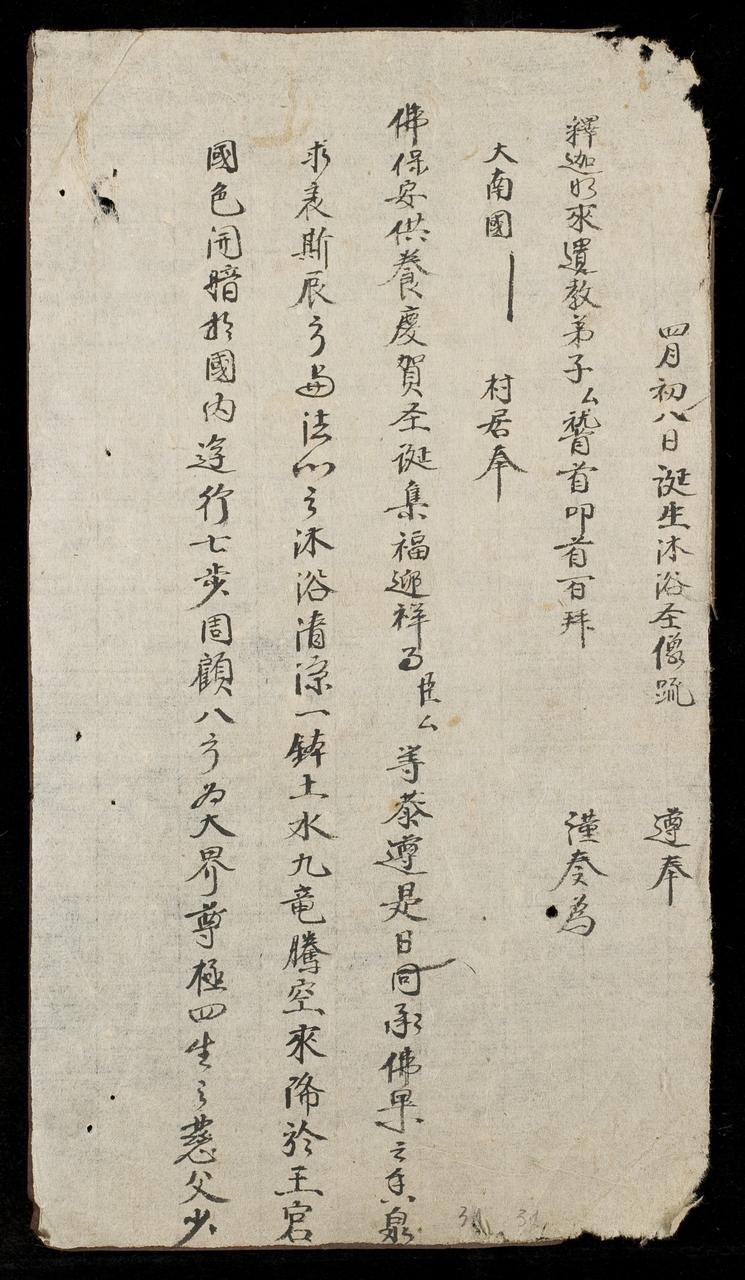 四月初八日誕生沐浴圣像疏 遵奉
釋迦如來遺教弟子厶稽首叩首百拜 謹奏為
大南國 村居奉
佛保安供養慶賀圣誕集福迎祥事臣厶等恭遵是日同承佛果之
求表斯辰方 法 之沐浴清涼一鉢土水九竜騰空來降於王宮
國色開 於國内遊行七步周顧八方為大界尊極四生之慈父少